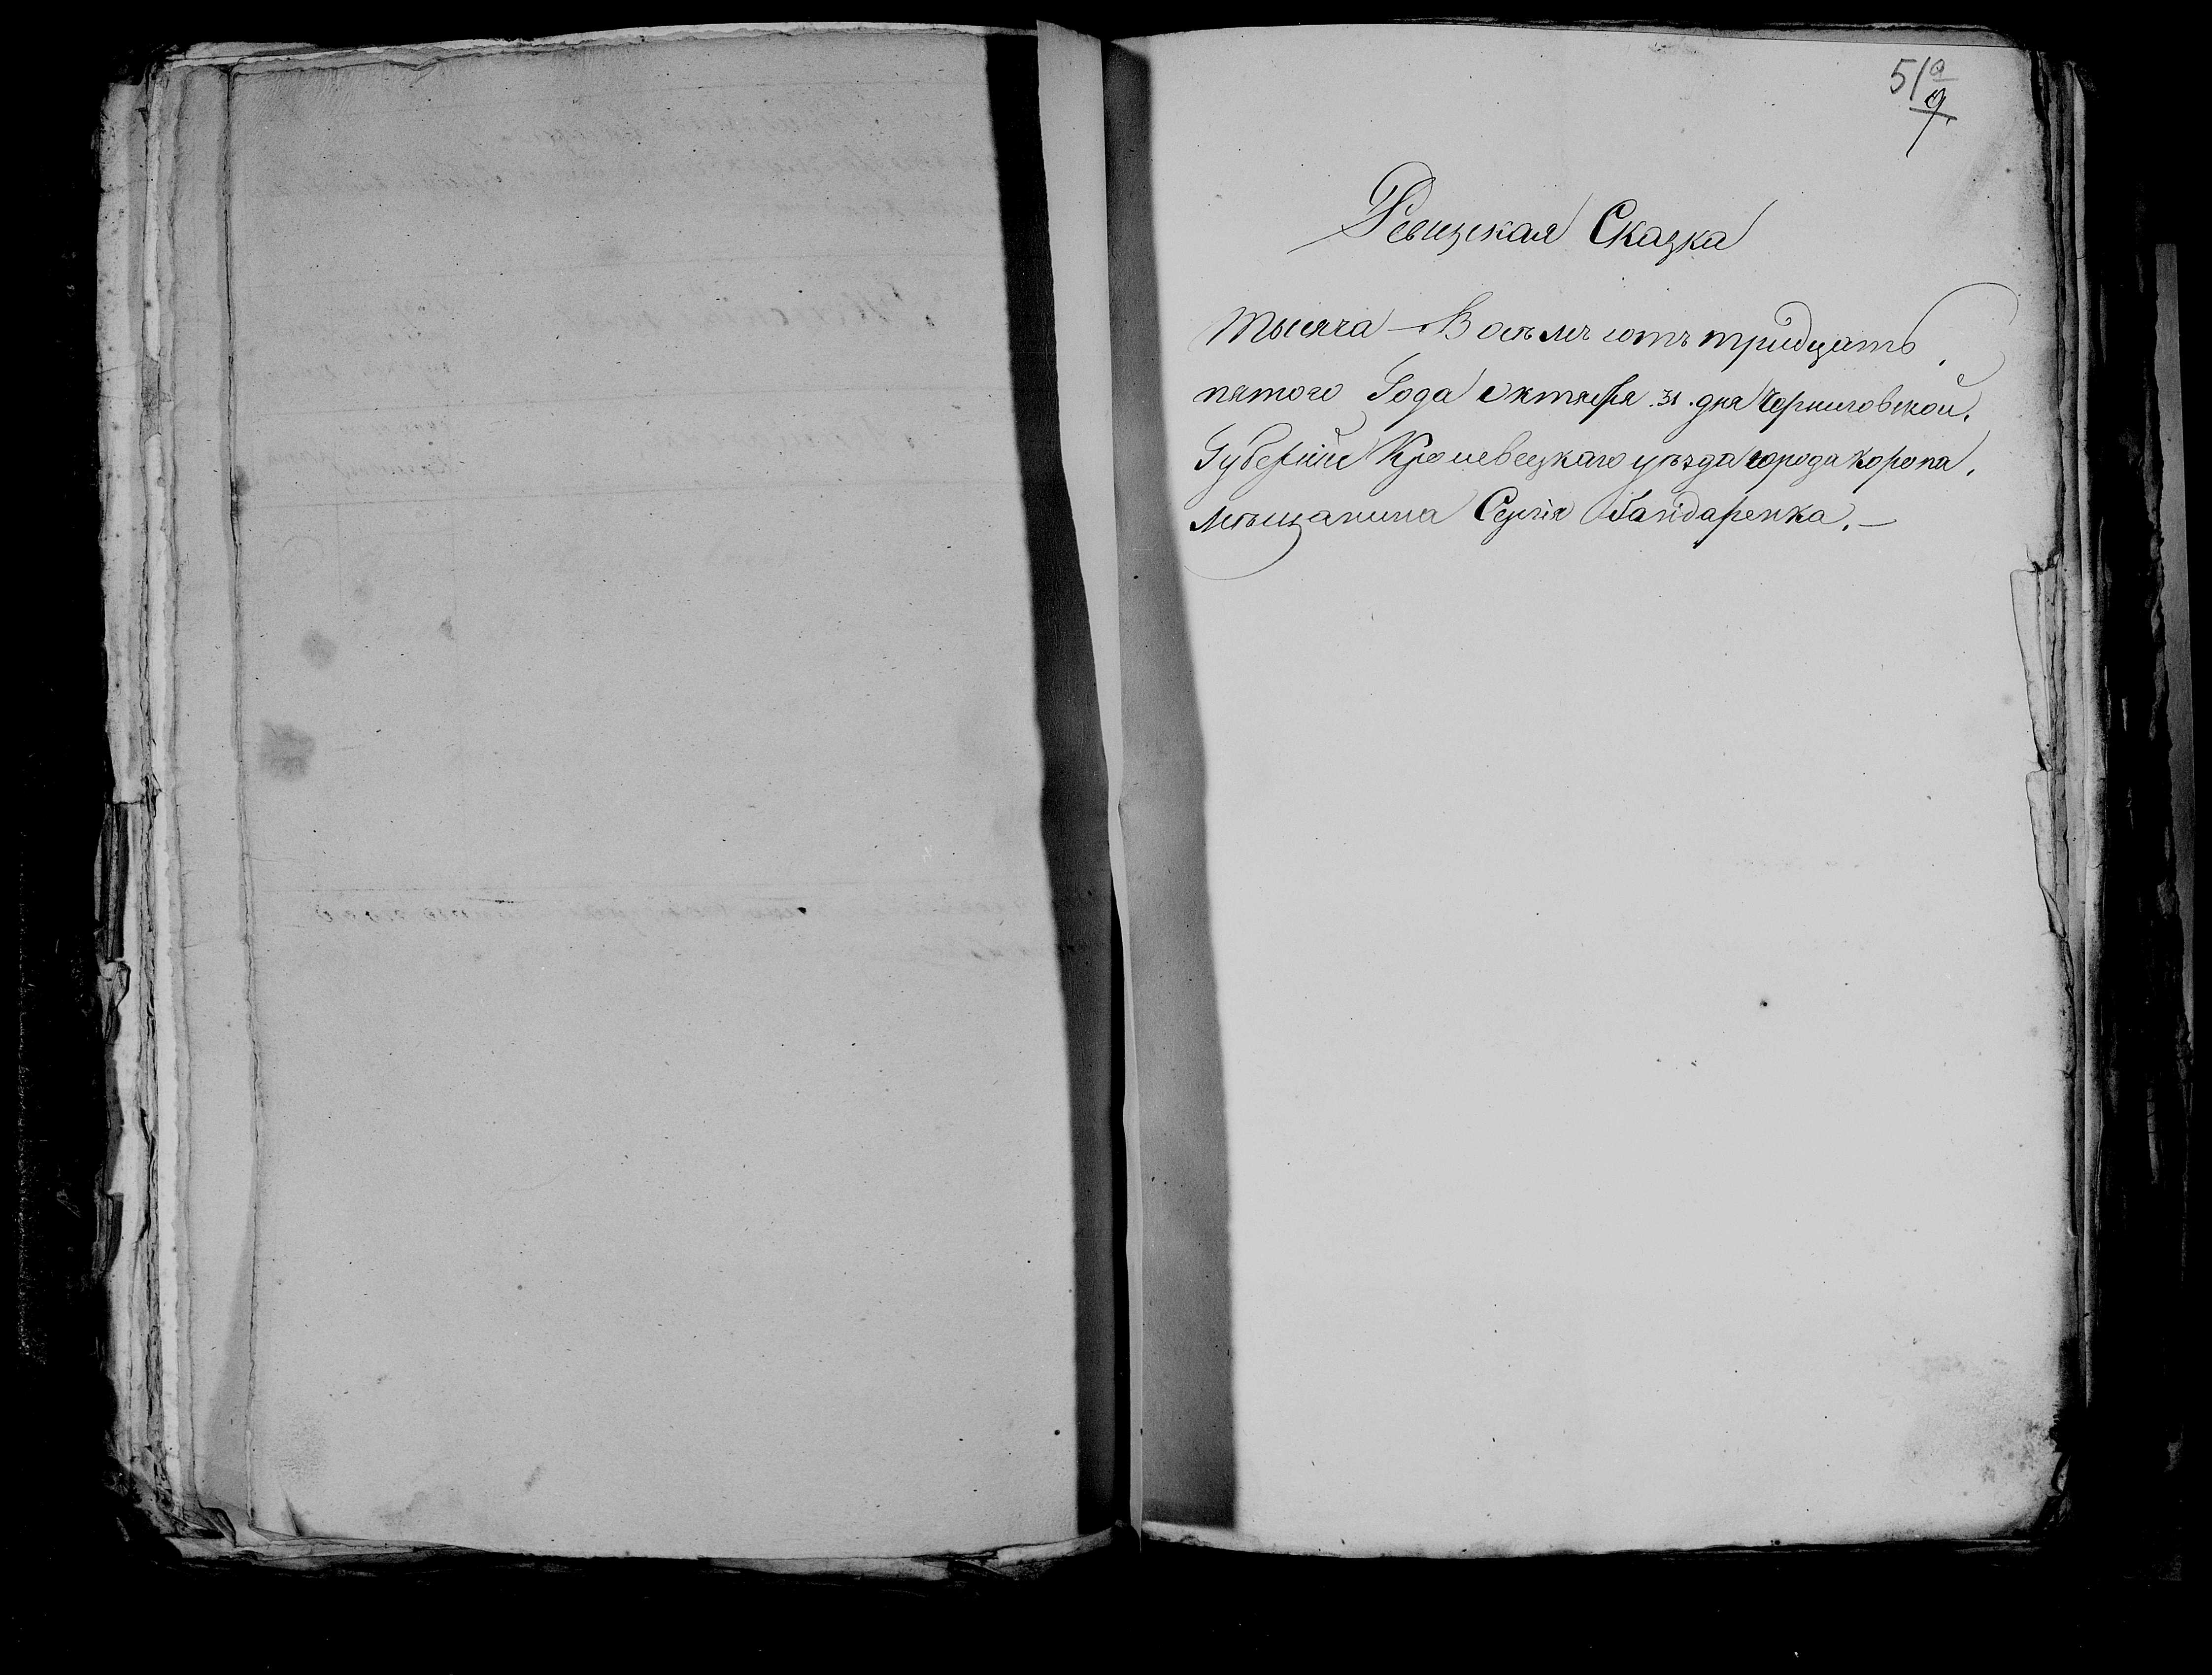 51
9
Ревизская Сказка
Тысяча Восемь сотъ тридцать
пятого Года Октября 31 дня Черниговской
Губерніи Кролевецкаго уѣзда города Коропа,
мѣщанина Сергія Бандаренка. —